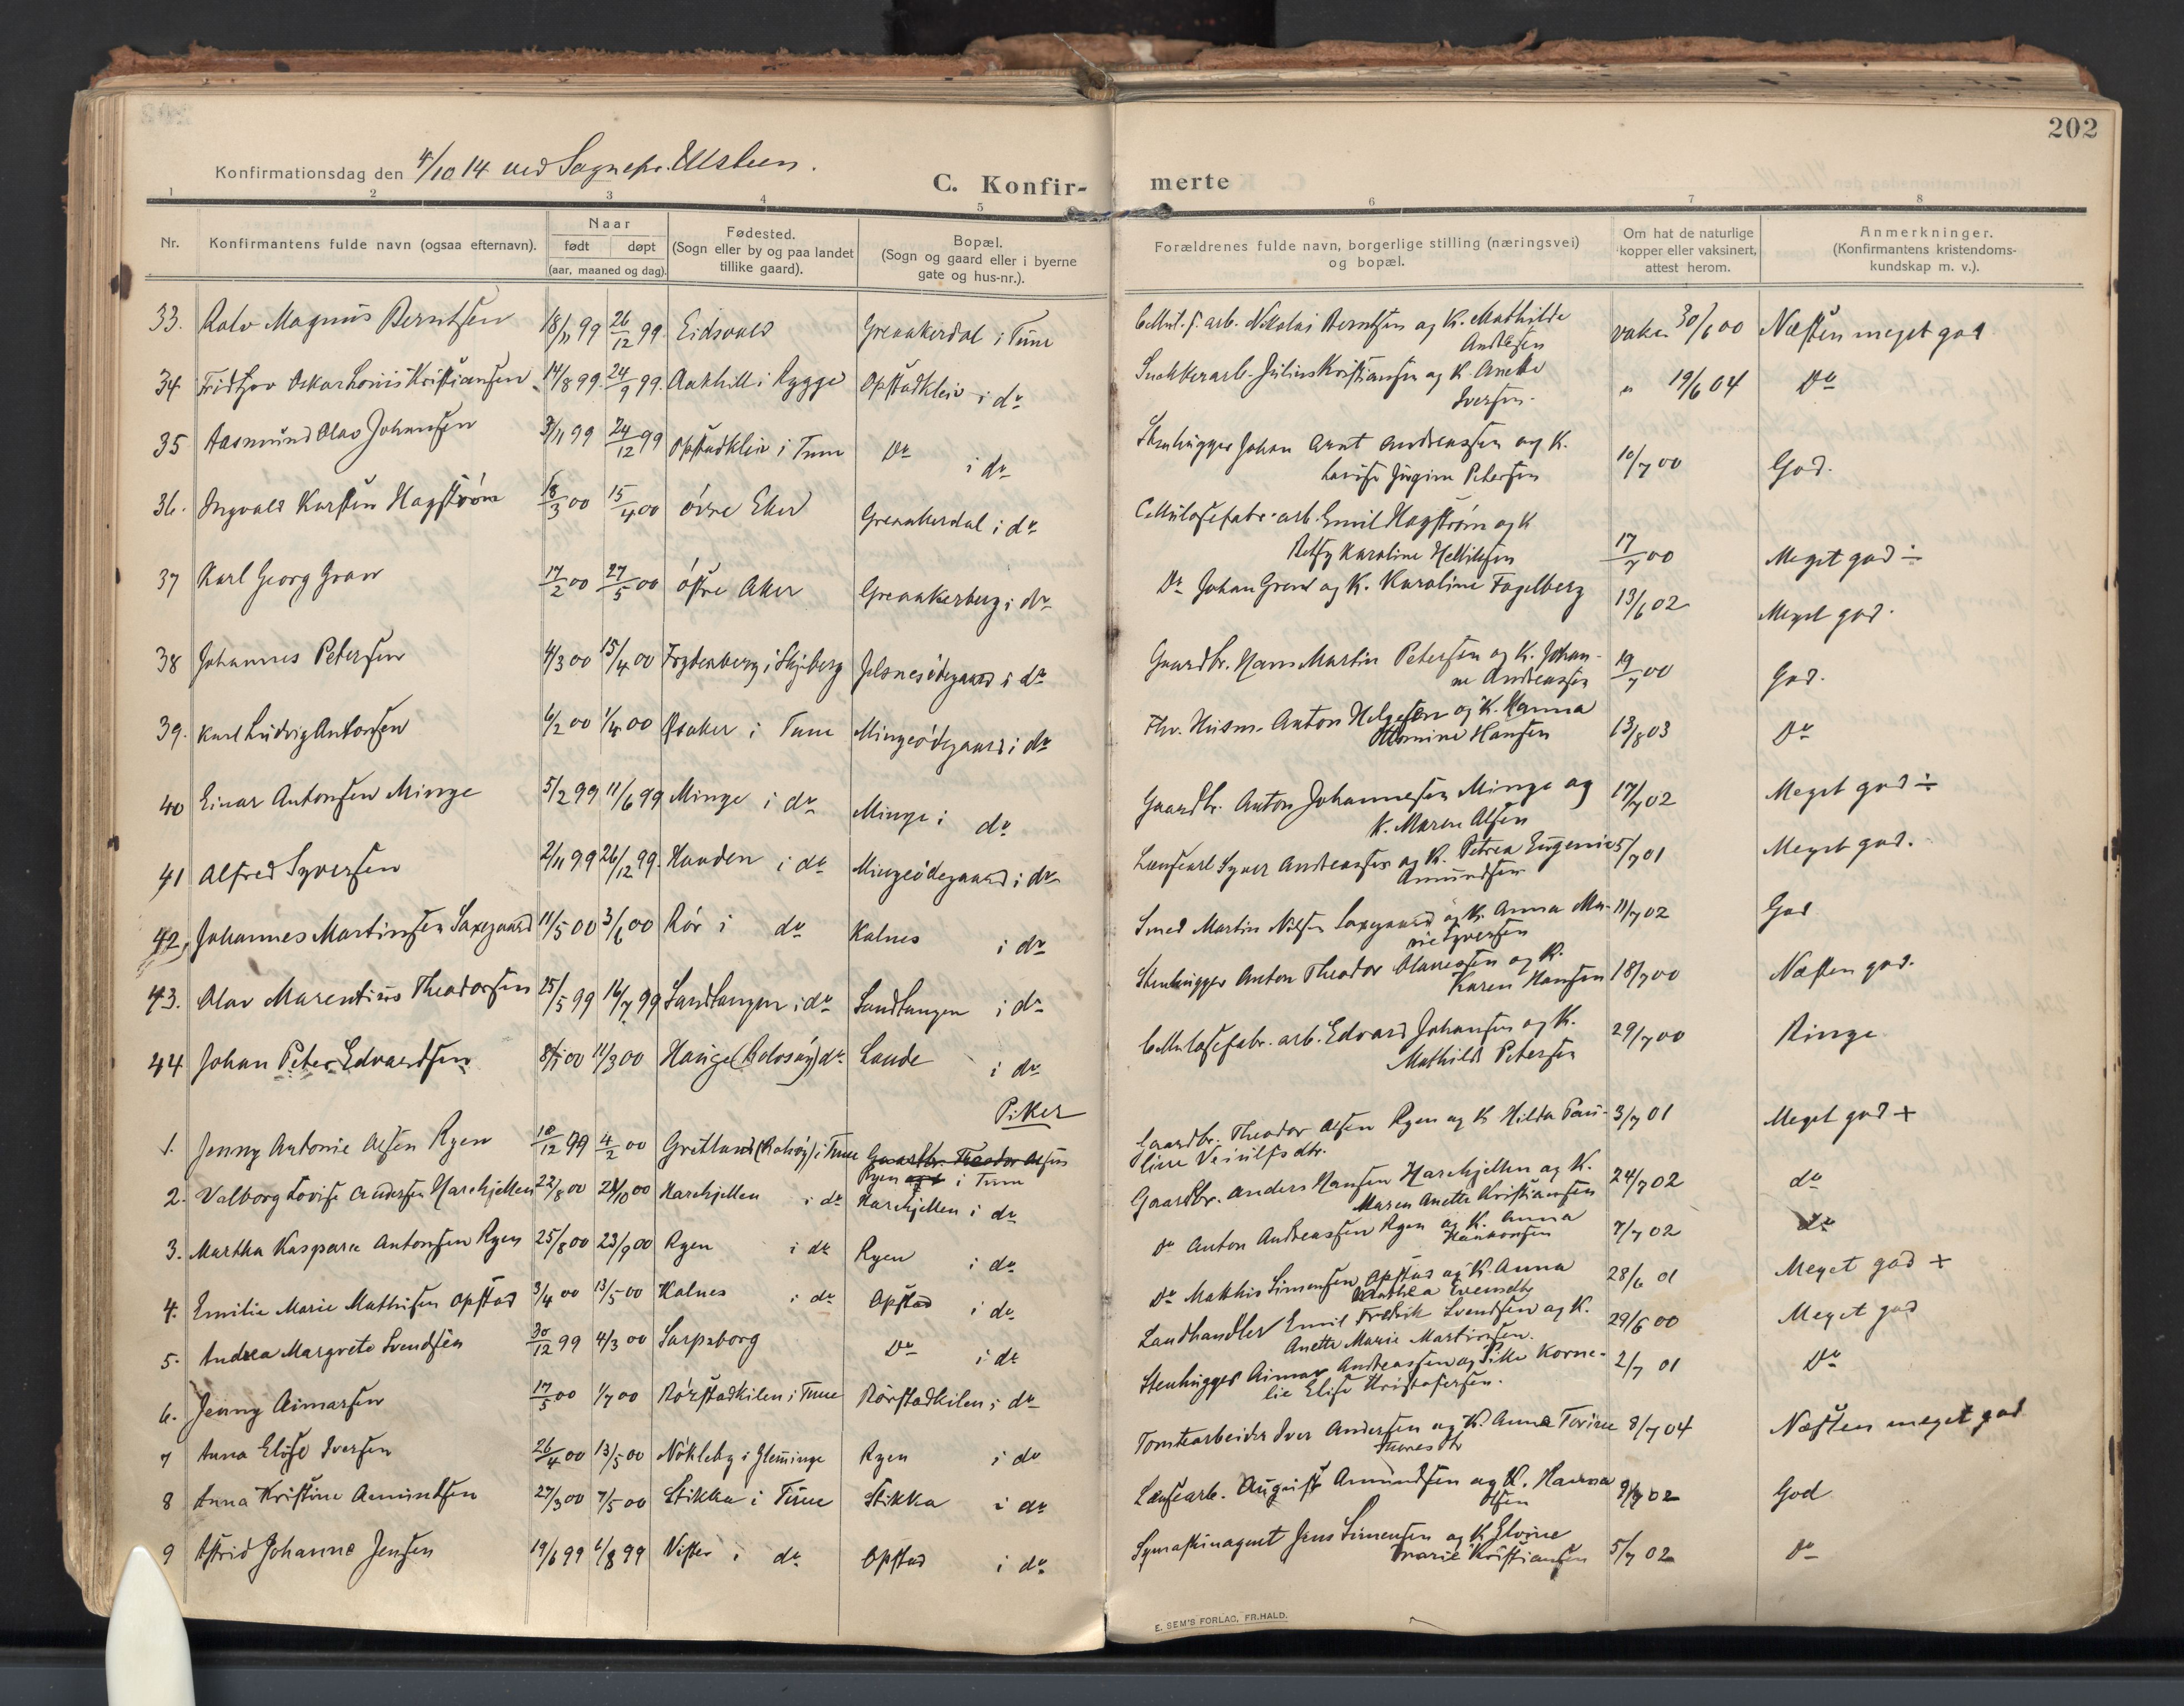 202
Konfirmationsdag den 4/10 14 ved Sognepr. Ulsteen.
C. Konfir- merte
1 2 3 4 5 6 7 8
Nr.
Konfirmantens fulde navn (ogsaa efternavn).
Naar
født døpt
(aar, maaned og dag).
Fødested.
(Sogn eller by og paa landet
tillike gaard).
Bopæl.
(Sogn og gaard eller i byerne
gate og hus-nr.).
Forældrenes fulde navn, borgerlige stilling (næringsvei)
og bopæl.
Om hat de naturlige
kopper eller vaksinert,
attest herom.
Anmerkninger.
(Konfirmantens kristendoms-
kundskap m. v.).
33. Ralv Magnus Berntsen 18/11 99 26/12 99. Eidsvold Greaakerdal i Tune Cellul. f. arb. Nikolai Berntsen og K. Mathilde vaks. 30/6 00 Næsten meget god
Andersen
34 Fridtjov Oskar Louis Kristiansen 14/8 99. 24/9 99. Aakhill i Rygge Opstadkleiv i do Snekkerarb. Julius Kristiansen og K. Anette " 19/6 04 Do
Iversen.
35 Aasmund Olav Johansen 3/11 99 24/12 99 Opstadkleiv i Tune Do i do Stenhugger Johan Arnt Andreassen og K. 10/7 00 God.
Lovise Jørgine Petersen
36. Ingvald Karsten Hagstrøm 18/3 00 15/4 00 øvre Eker Greaakerdal i do Cellulosefabr. arb. Emil Hagstrøm og K
Betsy Karoline Hellilesen 17/7 00 Meget god ÷
37 Karl Georg Gran 17/2 00 27/5 00 østre Aker Greaakerberg i do Do Johan Gren og K. Karoline Fagelberg 13/6 02 Meget god.
38 Johannes Petersen 4/3 00 15/4 00 Frydenberg i Skjeberg Jelsnesødegaard i do Gaardbr. Hans Martin Petersen og K. Johan- 19/7 00 God.
ne Andreassen
39. Karl Ludvig Antonsen 6/2 00 1/4 00 Øsaker i Tune Mingeødegaard i do Fhv. Husm. Anton Helgesen og K. Hanna 13/8 03 Do
Hansen
40 Einar Antonsen Minge 5/2 99 11/6 99 Minge i do Minge i do Gaardbr. Anton Johannesen Minge og 17/7 02 Meget god ÷
K. Maren Olsen
41 Alfred Syversen 2/11 99 26/12 99. Hauden i do Mingeødegaard i do Lænsearb Syver Andreassen og K. Petrea Eugenie 5/7 01 Meget god.
Amundsen
42, Johannes Martinsen Saxegaard 11/5 00 3/6 00 Rør i do Kalnes i do Smed Martin Nilsen Saxegaard og K. Anna Ma- 11/7 02 God
rie Syversen
43. Olav Marentius Theodorsen 25/5 99 16/7 99 Sandtangen i do Sandtangen i do Stenhugger Anton Theodor Olaussen og K. 18/7 00 Næsten god.
Karen Hansen
44 Johan Peter Edvardsen 8/1 00 11/3 00 Hauge (Rolvsøy) do Lande i do Cellulosefabr. arb. Edvard Johansen og K. 29/7 00 Ringe
Mathilde Petersen
Piker
1. Jenny Antonie Olsen Ryen 10/12 99 4/2 00 Gretland (Rolvsøy) i Tune Gaardbr. Theodor Olsen Gaardbr. Theodor Olsen Ryen og K Hilda Pau- 3/7 01 Meget god +
Ryen og K i Tune line Veisilfsdtr.
2. Valborg Lovise Andersen Harekjellen 22/8 00 21/10 00 Harekjellen i do Harekjellen i do Gaardbr. Anders Hansen Harekjellen og K. 24/7 02 do
Maren Anette Kristiansen
3. Martha Kaspara Antonsen Ryen 25/8 00 23/9 00 Ryen i do Ryen i do Do Anton Andreassen Ryen og K. Anna 7/7 02 do
Haakonsen
4. Emilie Marie Mathisen Opstad 3/4 00 13/5 00 Kalnes i do Opstad i do Do Mathis Simensen Opstad og K. Anna 28/6 01 Meget god +
Mathea Evensdtr
5. Andrea Margrete Svendsen 30/12 99 4/3 00 Sarpsborg Do i do Landhandler Emil Fredrik Svendsen og K. 29/6 00 Meget god
Anette Marie Martinsen.
6. Jenny Aimarsen 17/5 00 1/7 00 Rørstadkilen i Tune Rørstadkilen i do Stenhugger Aimar Andreassen og Pike Korne- 2/7 01 Do
lie Elise Kristofersen.
7 Anna Elise Iversen 26/4 00 13/5 00 Nøkleby i Glemminge Ryen i do Tomtearbeider Iver Andersen og K. Anna Tovine 8/7 04 Næsten meget god
8 Anna Kristine Amundsen 27/3 00 7/5 00 Stikka i Tune Stikka i do Lænsearb. August Amundsen og K. Hanna 9/7 02 God
Olsen
9 Astrid Johanne Jensen 19/6 99 6/8 99 Vister i do Opstad i do Symaskinagent Jens Simensen og K. Elvine 5/7 02 Do
Marie Kristiansen
E. SEM'S FORLAG, FR.HALD.